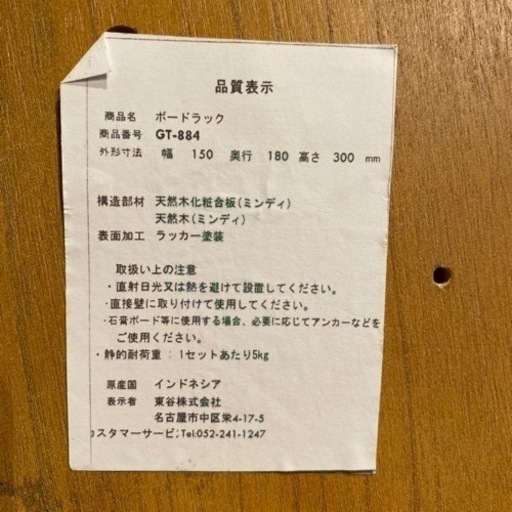 品質表示
商品名 ボードラック
商品番号 GT-884
外形寸法 幅 150 奥行 180 高さ 300 mm
構造部材 天然木化粧合板(ミンディ)
天然木(ミンディ)
表面加工 ラッカー塗装
取扱い上の注意
・直射日光又は熱を避けて設置してください。
・直接壁に取り付けて使用してください。
・石膏ボード等に使用する場合、必要に応じてアンカーなどを
ご使用ください。
・静的耐荷重:1セットあたり5kg
原産国 インドネシア
表示者 東谷株式会社
名古屋市中区栄4-17-5
カスタマーサービスTel:052-241-1247